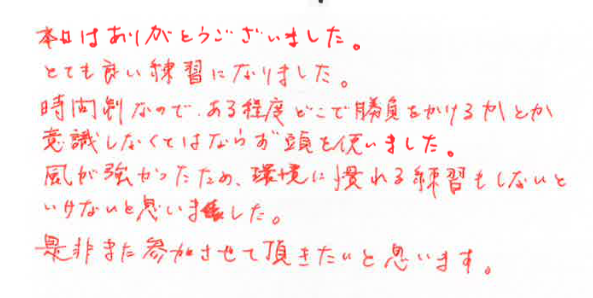 本日はありがとうございました。
とても良い練習になりました。
時間制なので、ある程度どこで勝負をかけるかとか
意識しなくてはならず頭を使いました。
風が強かったため、環境に慣れる練習もしないと
いけないと思いました。
是非また参加させて頂きたいと思います。